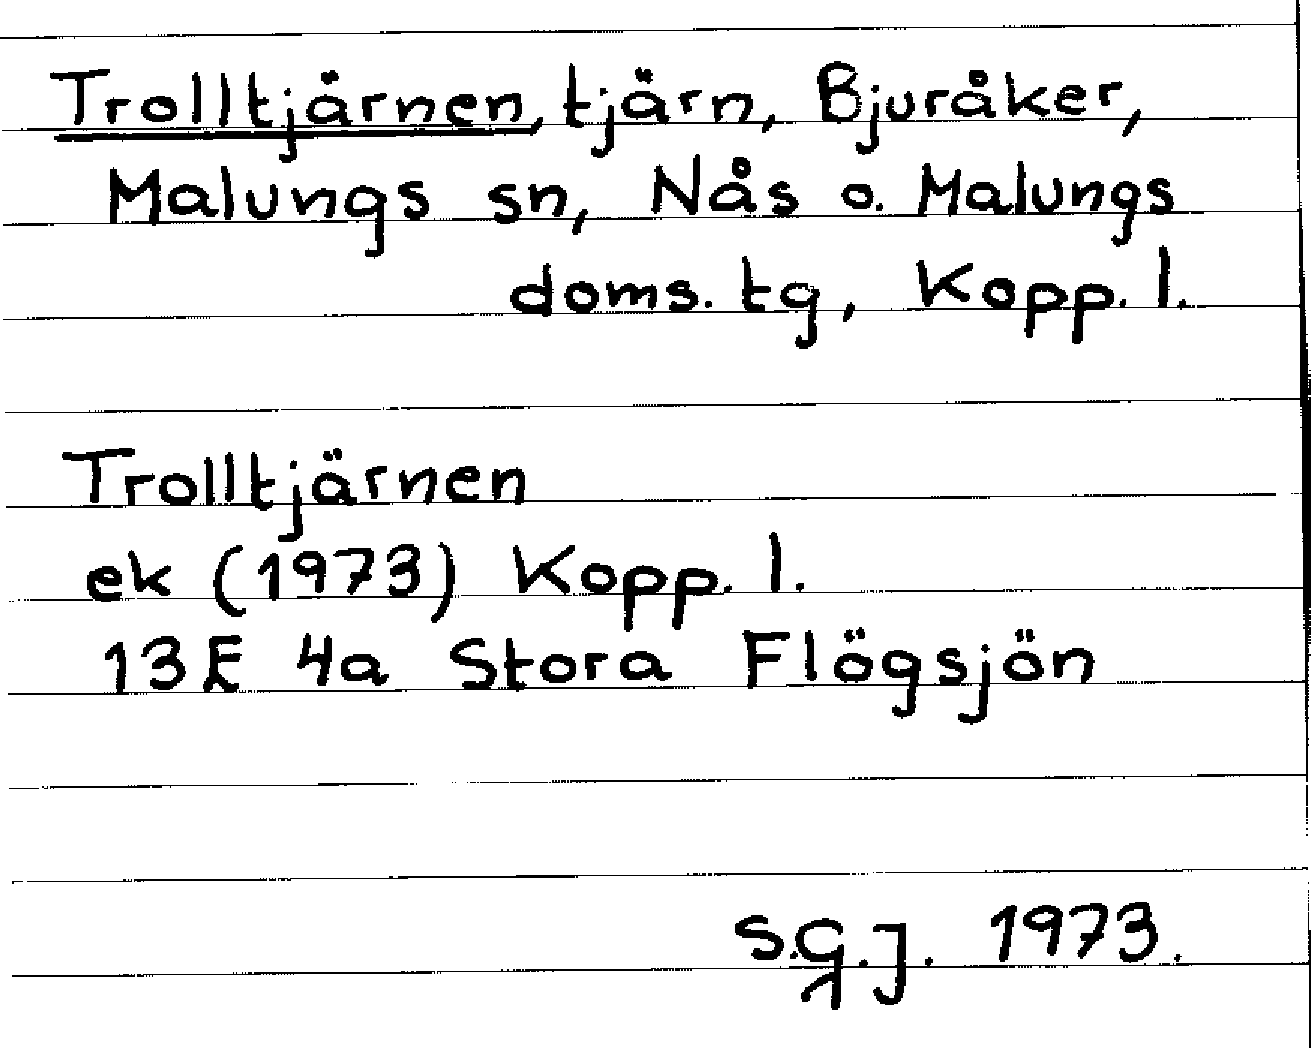 Trolltjärnen, tjärn, Bjuråker,
Malungs sn, Nås o. Malungs
doms. tg, Kopp. l.
Trolltjärnen
ek (1973) Kopp. l.
13E 4a Stora Flögsjön
S.G.J. 1973.